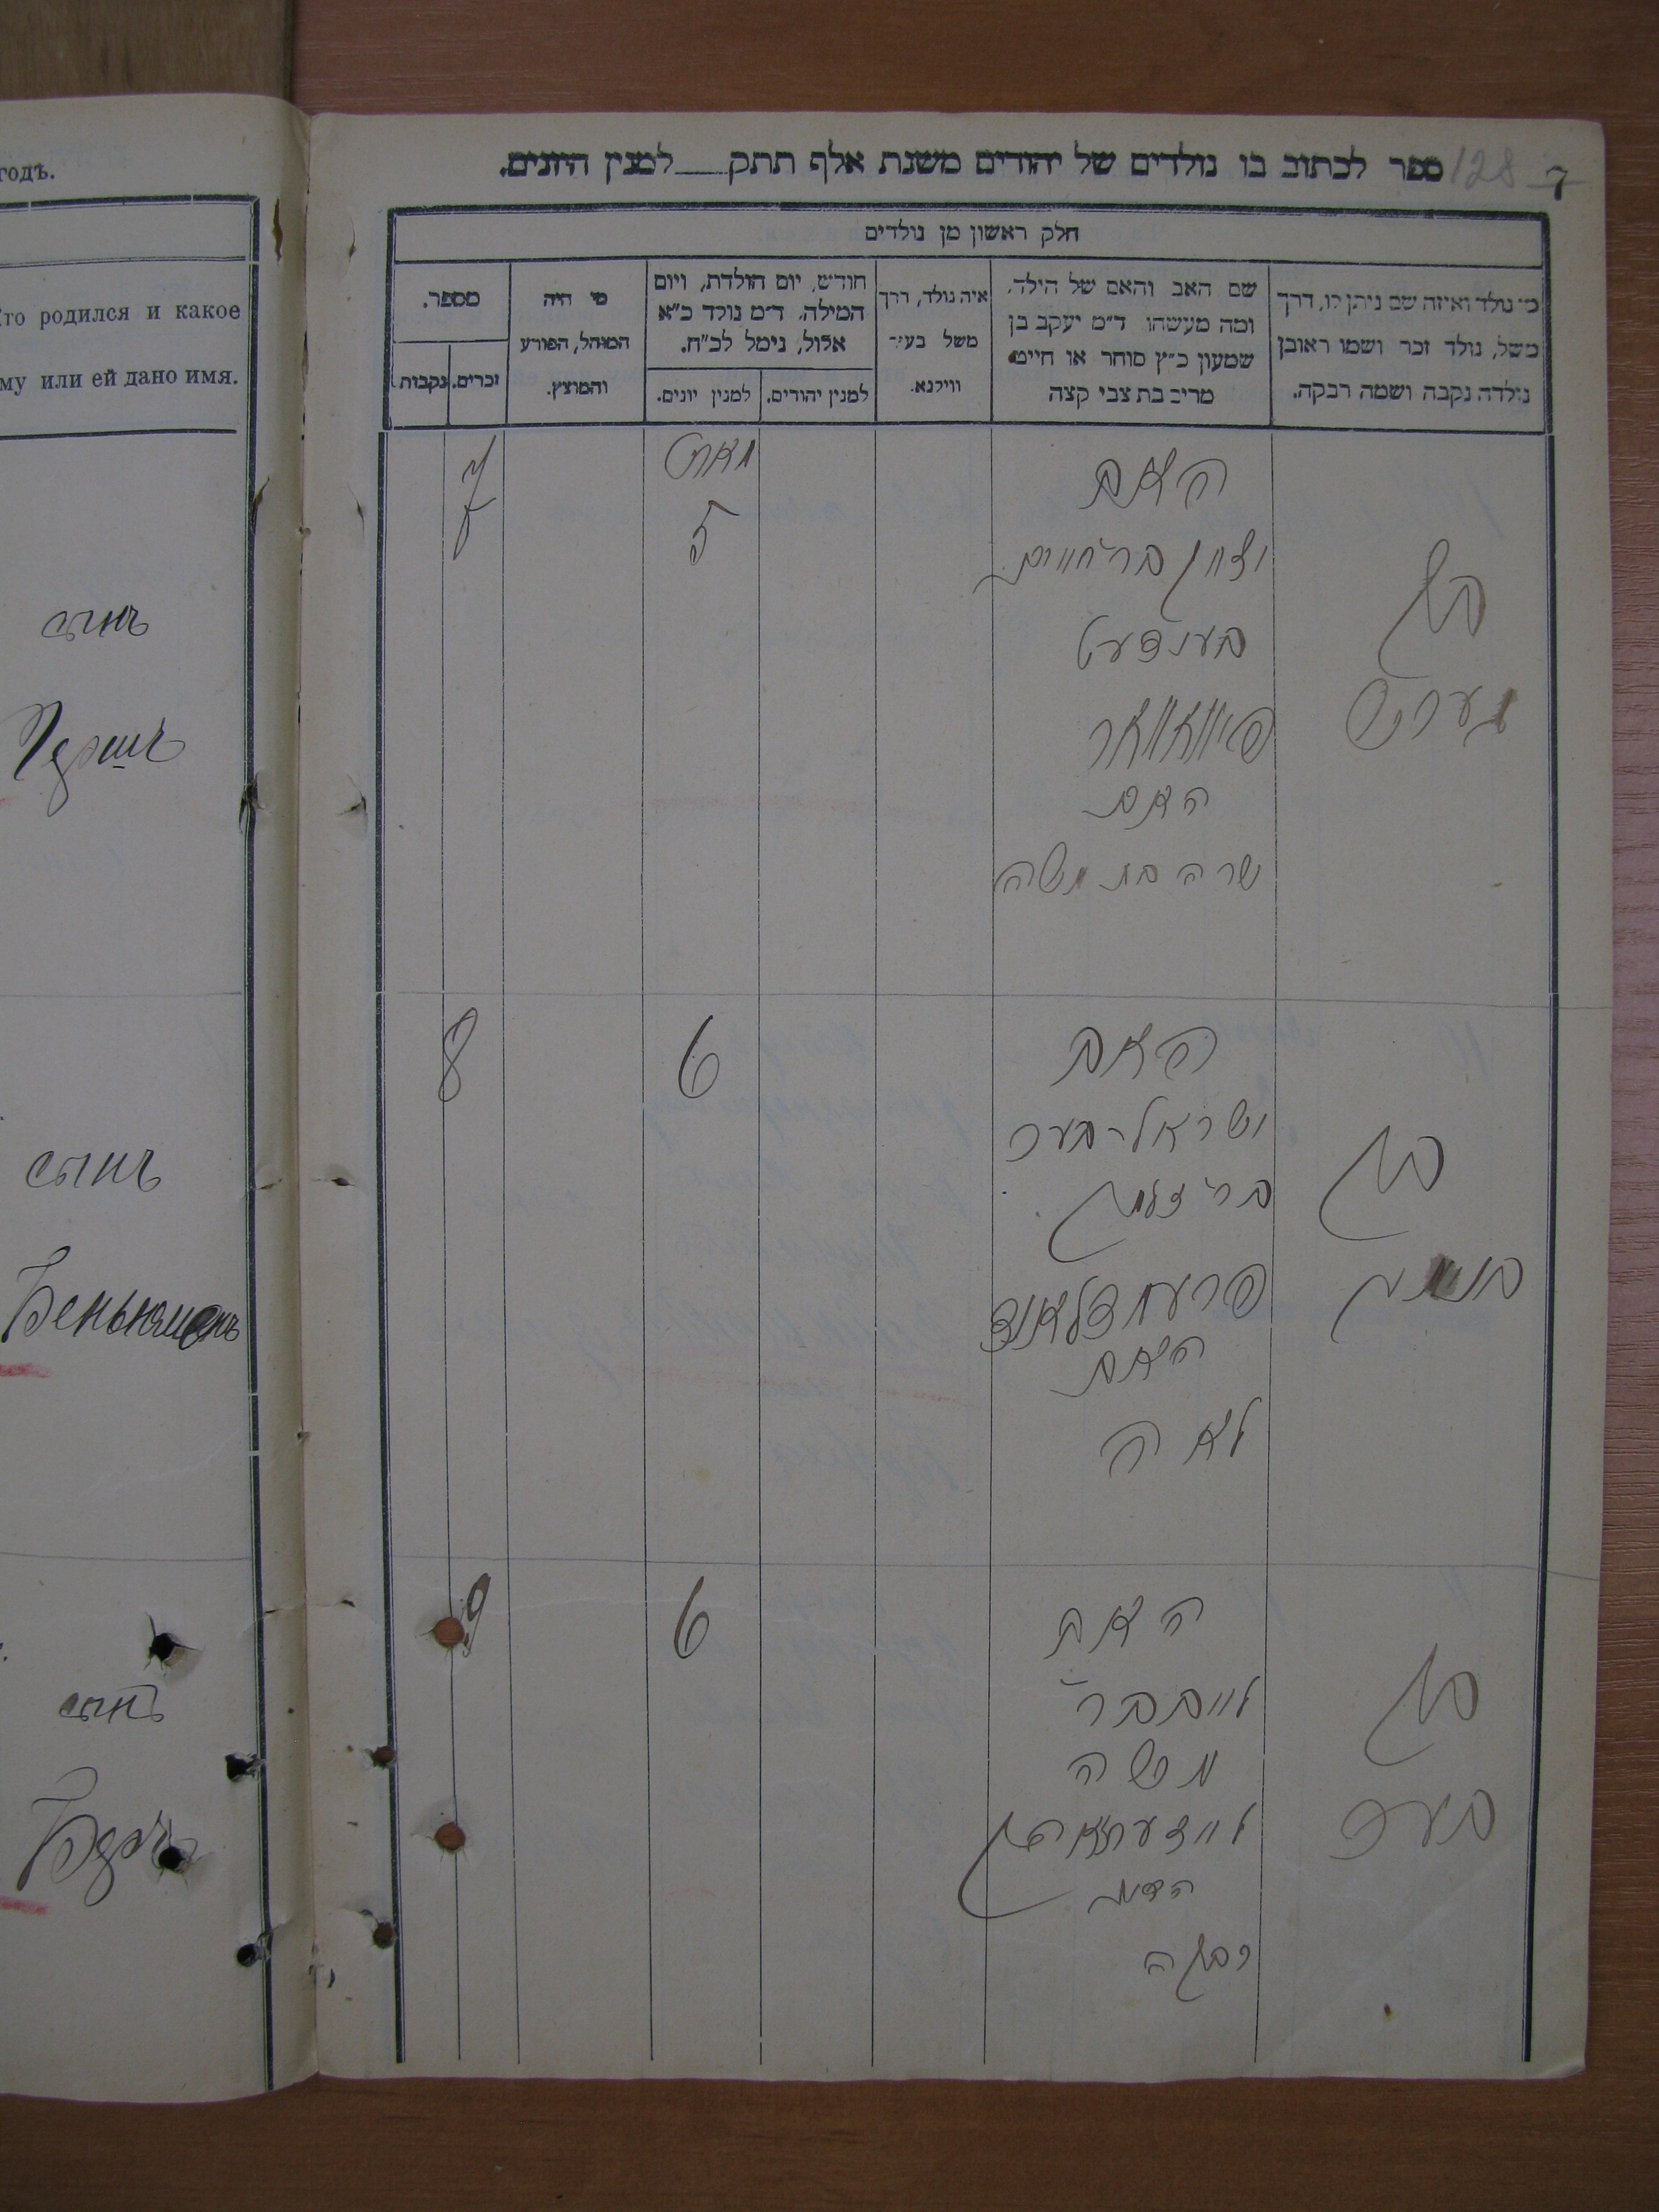 годъ.
Кто родился и какое
му или ей дано имя.
сынъ
Гершъ
сынъ
Беньяминъ
сынъ
Беръ
7
128
ספר לכתוב בו נולדים של יהודים משנת אלף תתק___למנין היונים.
חלק ראשון מן נולדים
מי נולד ואיזה שם ניתן לו, דרך
משל, נולד זכר ושמו ראובן
נולדה נקבה ושמה רבקה.
שם האב והאם של הילד,
ומה מעשהו ד״מ יעקב בן
שמעון כ״ץ סוחר או חייט
מרים בת צבי קצה
איה נולד, דרך
משל בעיר
ווילנא.
חודש, יום הולדת, ויום
המילה. ד״מ נולד כ״א
אלול, נימל לכ״ח.
למנין יהודים.
למנין יונים.
מי היה
המוהל, הפורע
והמוצץ.
מספר.
זכרים.
נקבות
בן
האב
בר חיים
בענדעט
האם
שרה בת משה
5
7
בן
האב
ישראל בער
פרעמדלאנד
האם
לאה
6
8
בן
בער
האב
לייב בר
משה
האם
רבקה
6
9